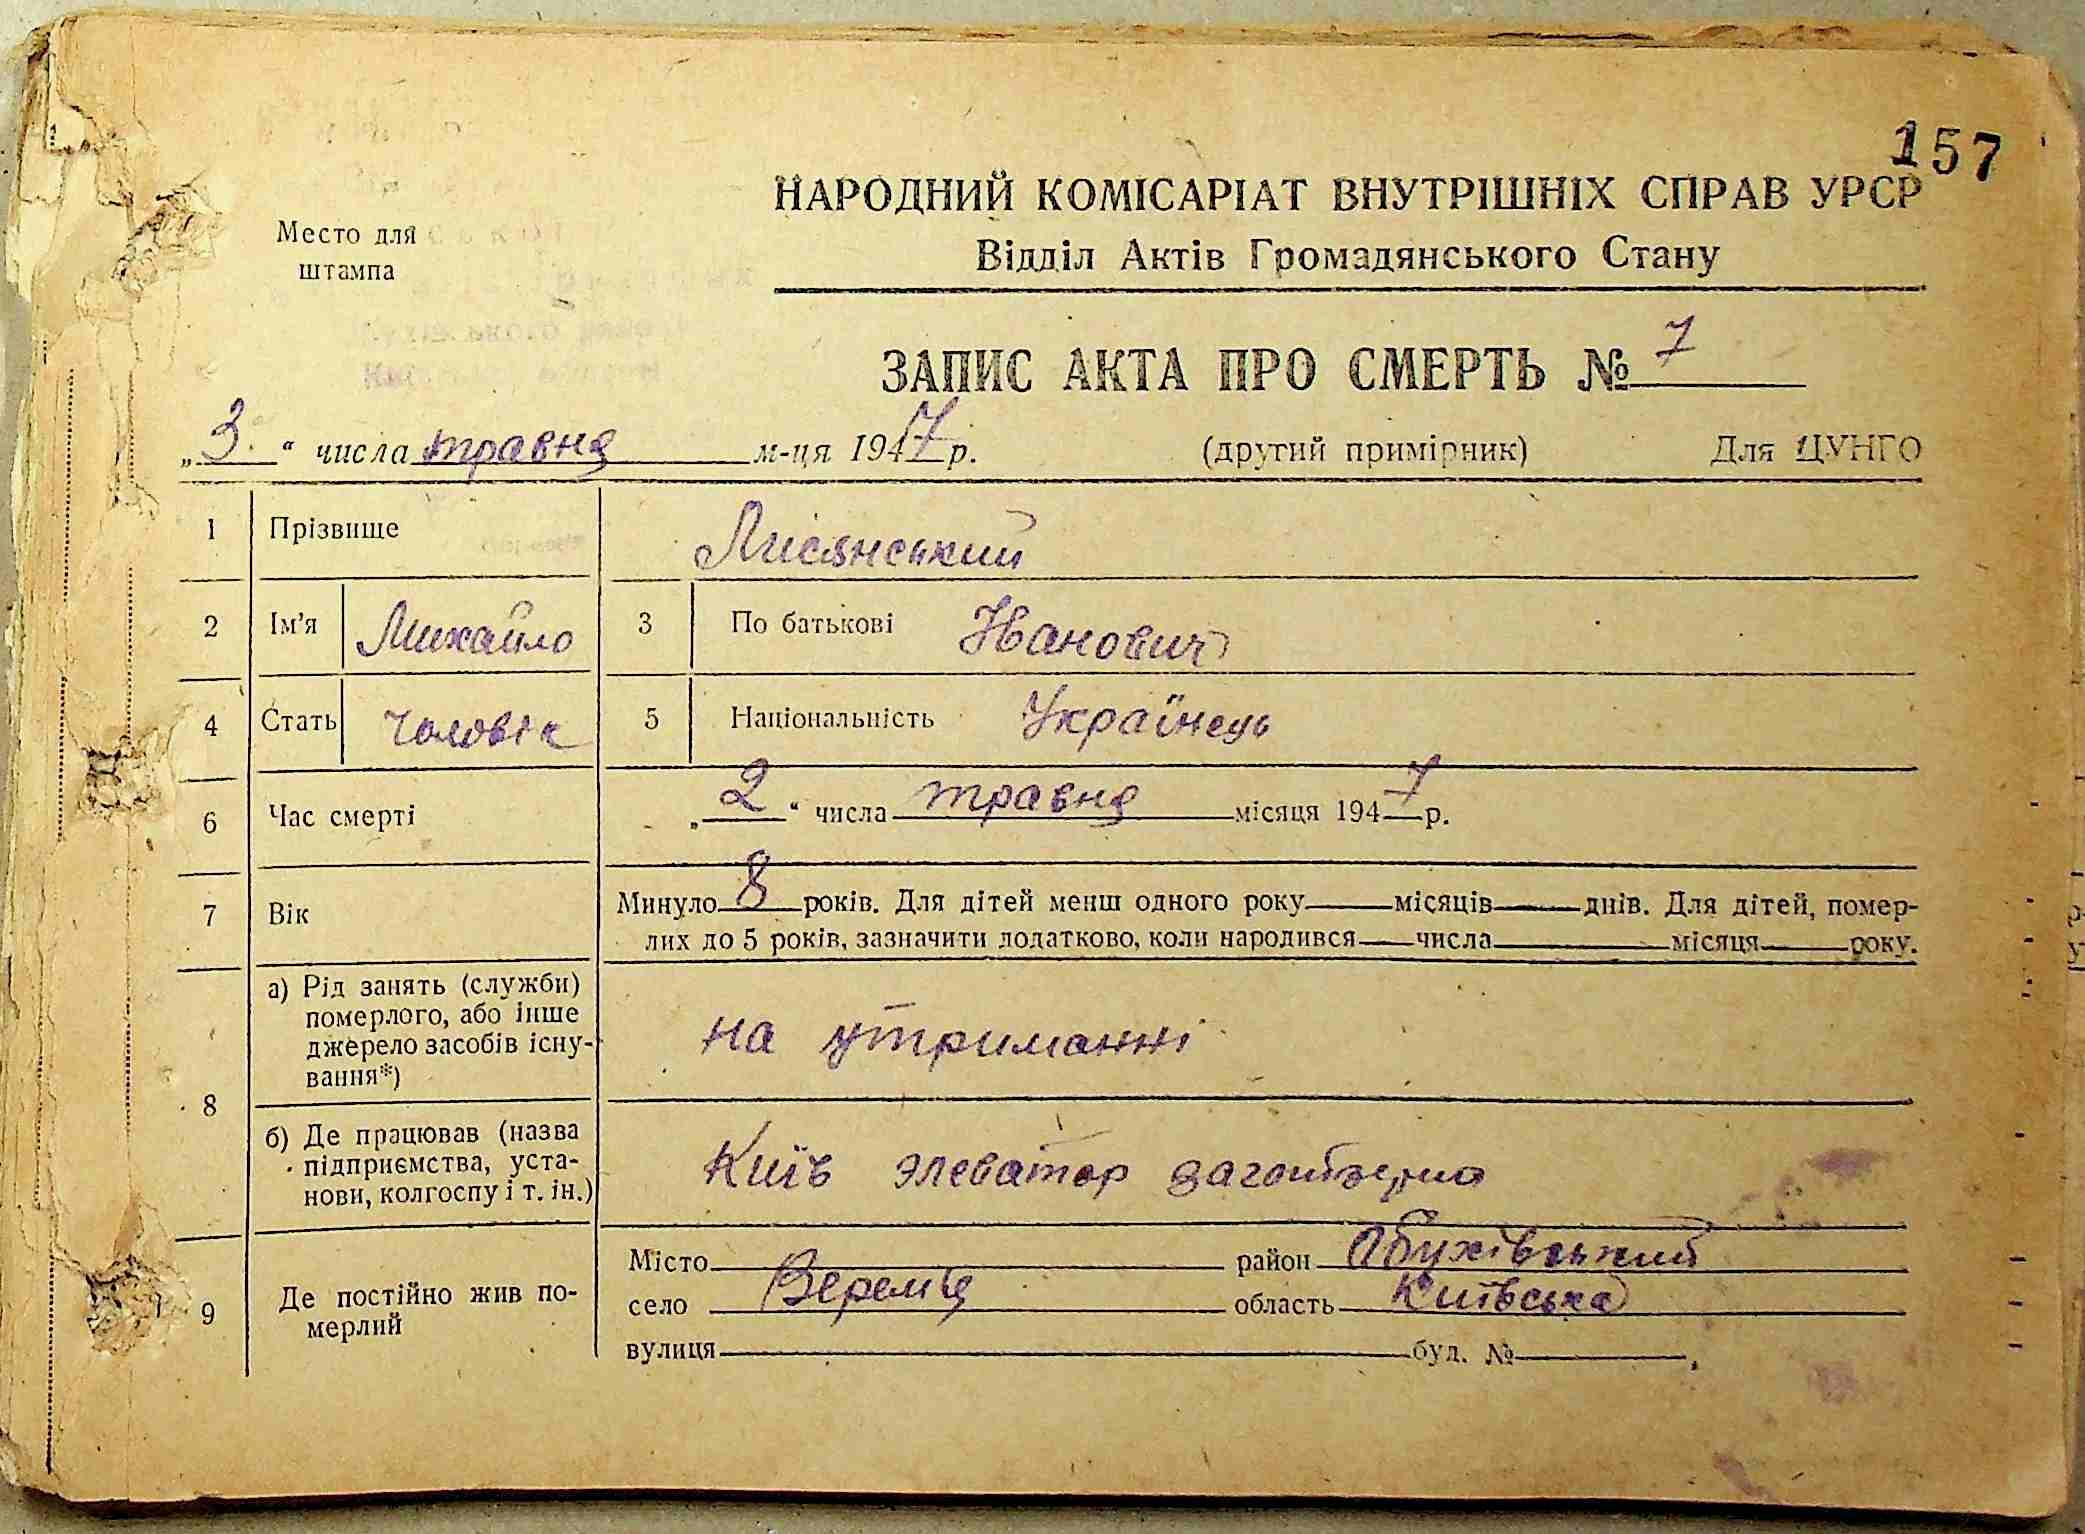 157
НАРОДНИЙ КОМІСАРІАТ ВНУТРІШНІХ СПРАВ УРСР
Место для штампа
Відділ Актів Громадянського Стану
ЗАПИС АКТА ПРО СМЕРТЬ № 7
„3“ числа травня м-ця 1947 р. (другий примірник) Для ЦУНГО
1 Прізвище Лисянський
2 Ім'я Михайло 3 По батькові Іванович
4 Стать чоловік 5 Національність Українець
6 Час смерті „2“ числа травня місяця 1947 р.
7 Вік Минуло 8 років. Для дітей менш одного року місяців днів. Для дітей, помер-
лих до 5 років, зазначити додатково, коли народився числа місяця року.
8 а) Рід занять (служби)
померлого, або інше
джерело засобів існу-
вання*)
на утриманні
б) Де працював (назва
підприємства, уста-
нови, колгоспу і т. ін.)
Київ элеватор заготзерно
9 Де постійно жив по-
мерлий
Місто район Обухівський
село Веремія область Київська
вулиця буд. №